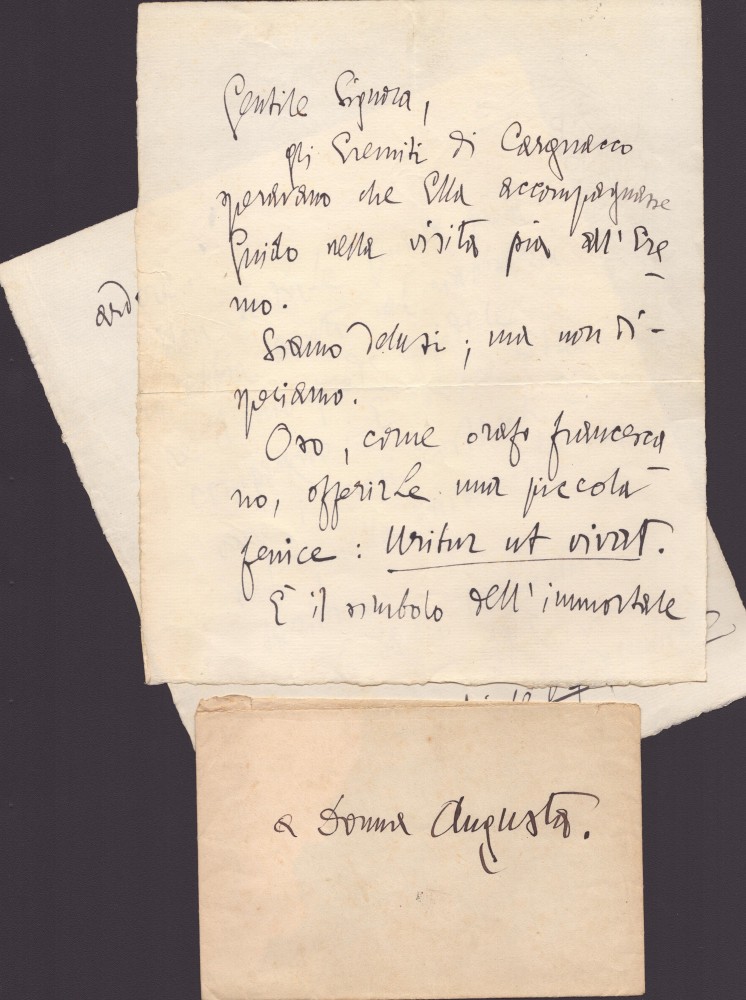 Gentile Signora,
gli Eremiti di Cargnacco
speravano che Ella accompagnasse
Guido nella visita pia all' Ere
mo.
Siamo delusi; ma non di-
speriamo.
Oso, come orafo francesca
no, offerirLe una piccola
fenice: Uritur ut vivat.
È il simbolo dell' immortale
a Donna Augusta.